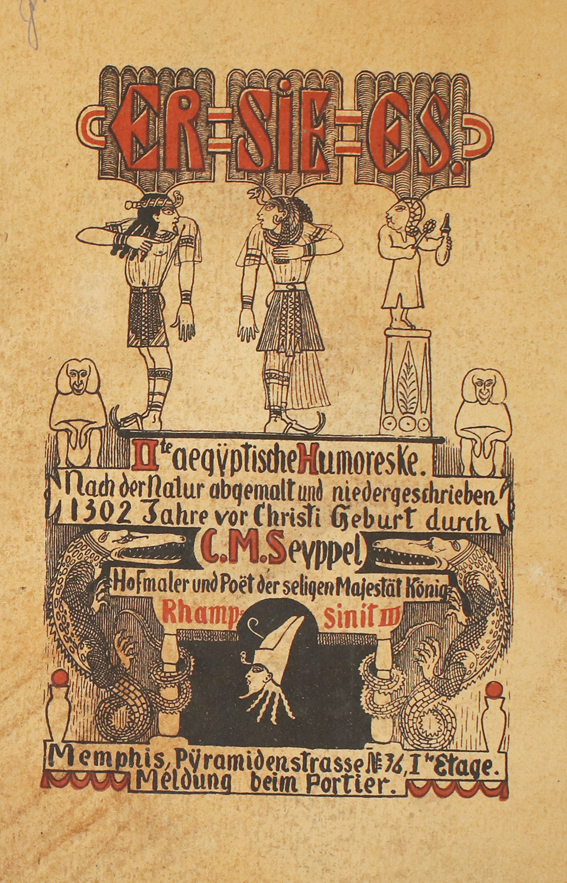 ER=SiE=ES.
IIte aegÿptische Humoreske.
Nach der Natur abgemalt und niedergeschrieben
1302 Jahre vor Christi Geburt durch
C.M.Seyppel
Hofmaler und Poët der seligen Majestät König
Rhamp- sinit III
Memphis, Pÿramidenstrasse № 36, Ite Etage.
Meldung beim Portier.